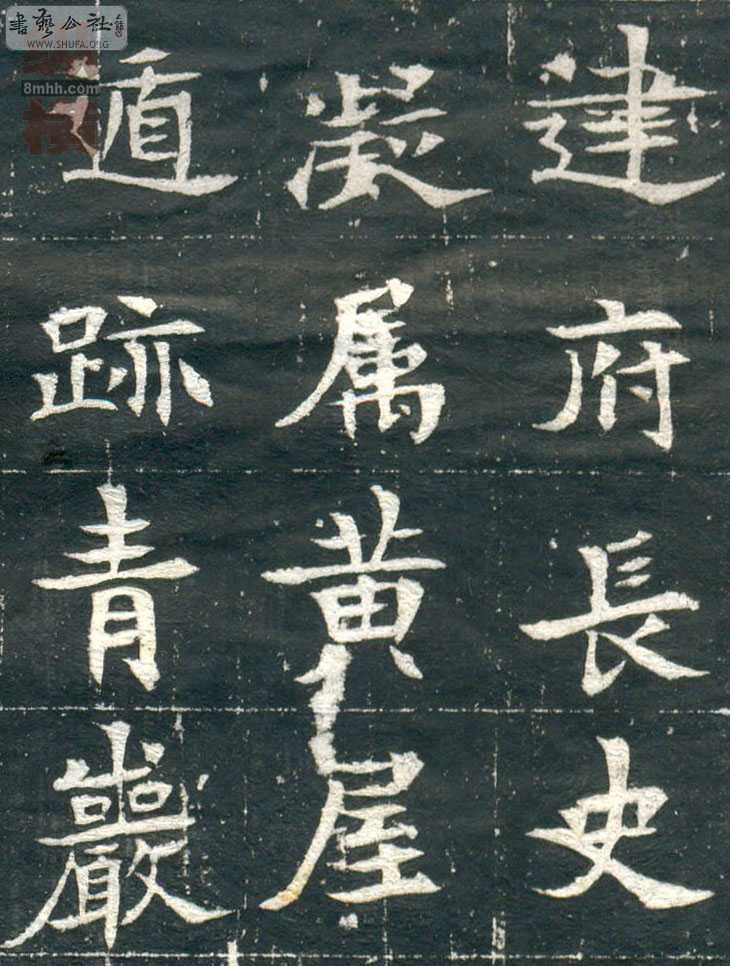 建府長史
凝属黄屋
遁跡青巖
書藝公社
WWW.SHUFA.ORG
8mhh.com